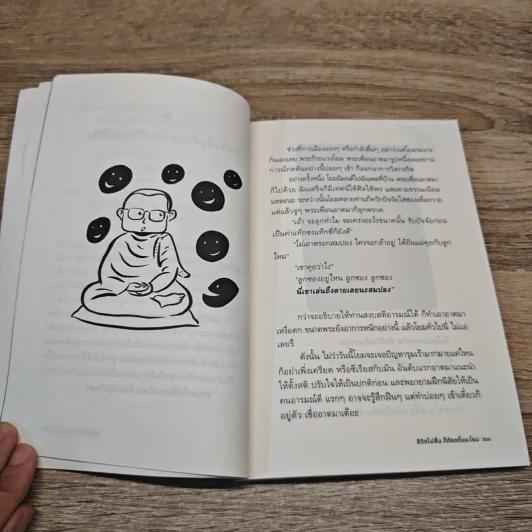 ช่วงที่การเมืองแรงๆ หรือกำลังตื่นๆ อย่าว่าแต่โยมระแวง
กันเองเลย พระก็ระแวงโยม พระเพื่อนอาตมารูปหนึ่งเจอสถาน
การณ์กดดันอย่างนี้บ่อยๆ เข้า ก็ออกอาการวิตกจริต
อย่างครั้งหนึ่ง โยมนิมนต์ไปฉันเพลที่บ้าน พระเพื่อนอาตมา
ก็ไปด้วย ฉันเสร็จก็มีเทศน์ให้ศีลให้พร และตามธรรมเนียม
แหละนะ ระหว่างนั้นโยมหลายท่านก็ควักปัจจัยใส่ซองเพื่อถวาย
แต่แล้วจู่ๆ พระเพื่อนอาตมาก็ลุกพรวด
"เอ้า จะลุกทำไม จะเคร่งอะไรขนาดนั้น รับปัจจัยก่อน
เป็นค่าแท็กซงแท็กซี่ก็ยังดี"
"ไม่เอาหรอกสมปอง ใครจะกล้าอยู่ ได้ยินแม่คุยกับลูก
ไหม"
"เขาคุยว่าไง"
"ลูกซองอยู่ไหน ลูกซอง ลูกซอง
นี่เขาเล่นถึงตายเลยนะสมปอง"
กว่าจะอธิบายให้ท่านสงบสติอารมณ์ได้ ก็ทำเอาอาตมา
เหงื่อตก ขนาดพระยังอาการหนักอย่างนี้ แล้วโยมทั่วไปนี่ ไม่แย่
เลยรึ
ดังนั้น ไม่ว่าวันนี้โยมจะเจอปัญหารุมเร้ามากมายแค่ไหน
ก็อย่าเพิ่งเครียด หรือซีเรียสกับมัน อันดับแรกอาตมาแนะนำ
ให้ตั้งสติ ปรับใจให้เป็นปกติก่อน และพยายามฝึกนิสัยให้เป็น
คนอารมณ์ดี แรกๆ อาจจะรู้สึกฝืนๆ แต่ทำบ่อยๆ เข้าเดี๋ยวก็
อยู่ตัว เชื่ออาตมาเต๊อะ
ชีวิตไม่สิ้น ก็ต้องดิ้นนะโยม